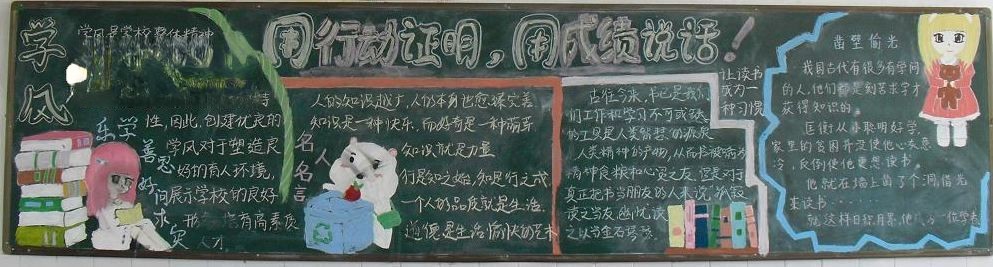 用行动证明，用成绩说话！
学风
学风是学校整体精神
性，因此，创建优良的
学风对于塑造良
好的育人环境，
展示学校的良好
有高素质
人才
乐学
善思
好问
求实
名人名言
人的知识越广，人的本身也愈臻完善
知识是一种快乐，而好奇是一种萌芽
知识就是力量
行是知之始，知是行之成
一个人的品质就是生活
道德是生活愉快的艺术
让读书
成为一
种习惯
古往今来，书已是我
们工作和学习不可或缺
的工具是人类智慧的源泉
人类精神的产物，从而书被喻为
精神食粮和心灵之友，但是对于
真正把书当朋友的人来说
读之
之以当金石琴瑟。
凿壁偷光
我国古代有很多有学问
的人，他们都是刻苦求学才
获得知识的。
匡衡从小聪明好学，
家里的贫困并没使他心灰意
冷，反倒使他更想读书。
他就在墙上凿了个洞，借光
来读书······
就这样日积月累，他成为一位学者